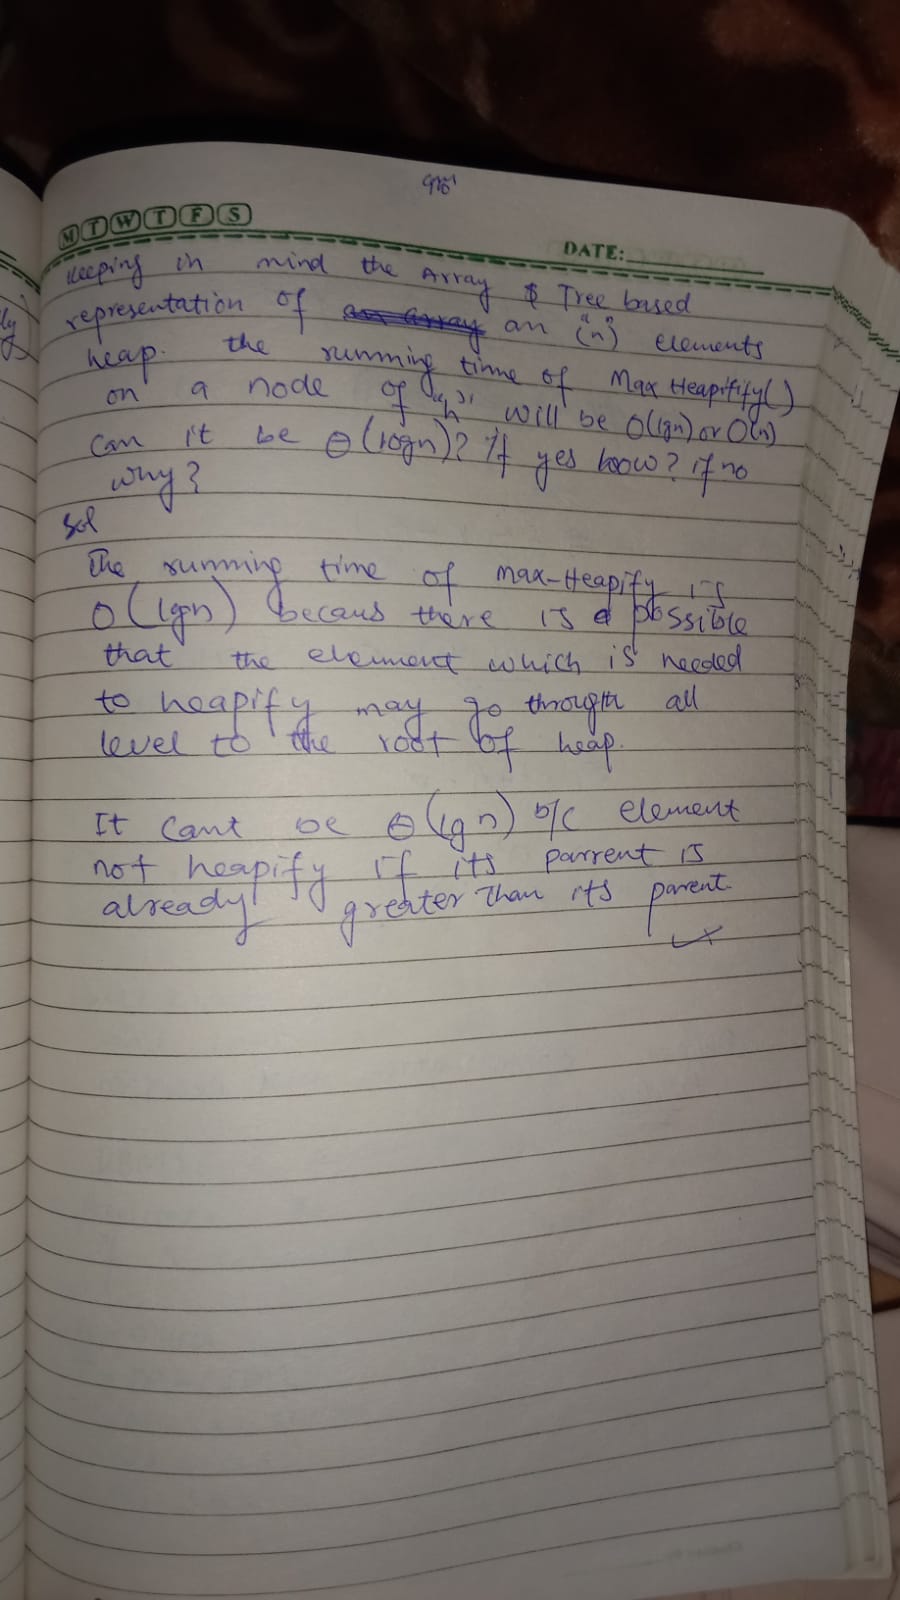 M T W T F S
DATE:
Keeping in mind the Array & Tree based
representation of an array an "n" elements
heap. the running time of Max Heapifify()
on a node of "h" will be O(lgn) or O(n)
Can it be θ(logn)? If yes how? if no
why?
Sol
The running time of max-Heapify is
O(lgn) becaus there is a possible
that the element which is needed
to heapify may go throigth all
level to the root of heap.
It cant be θ(lgn) b/c element
not heapify if its parrent is
already greater than its parent.
ly